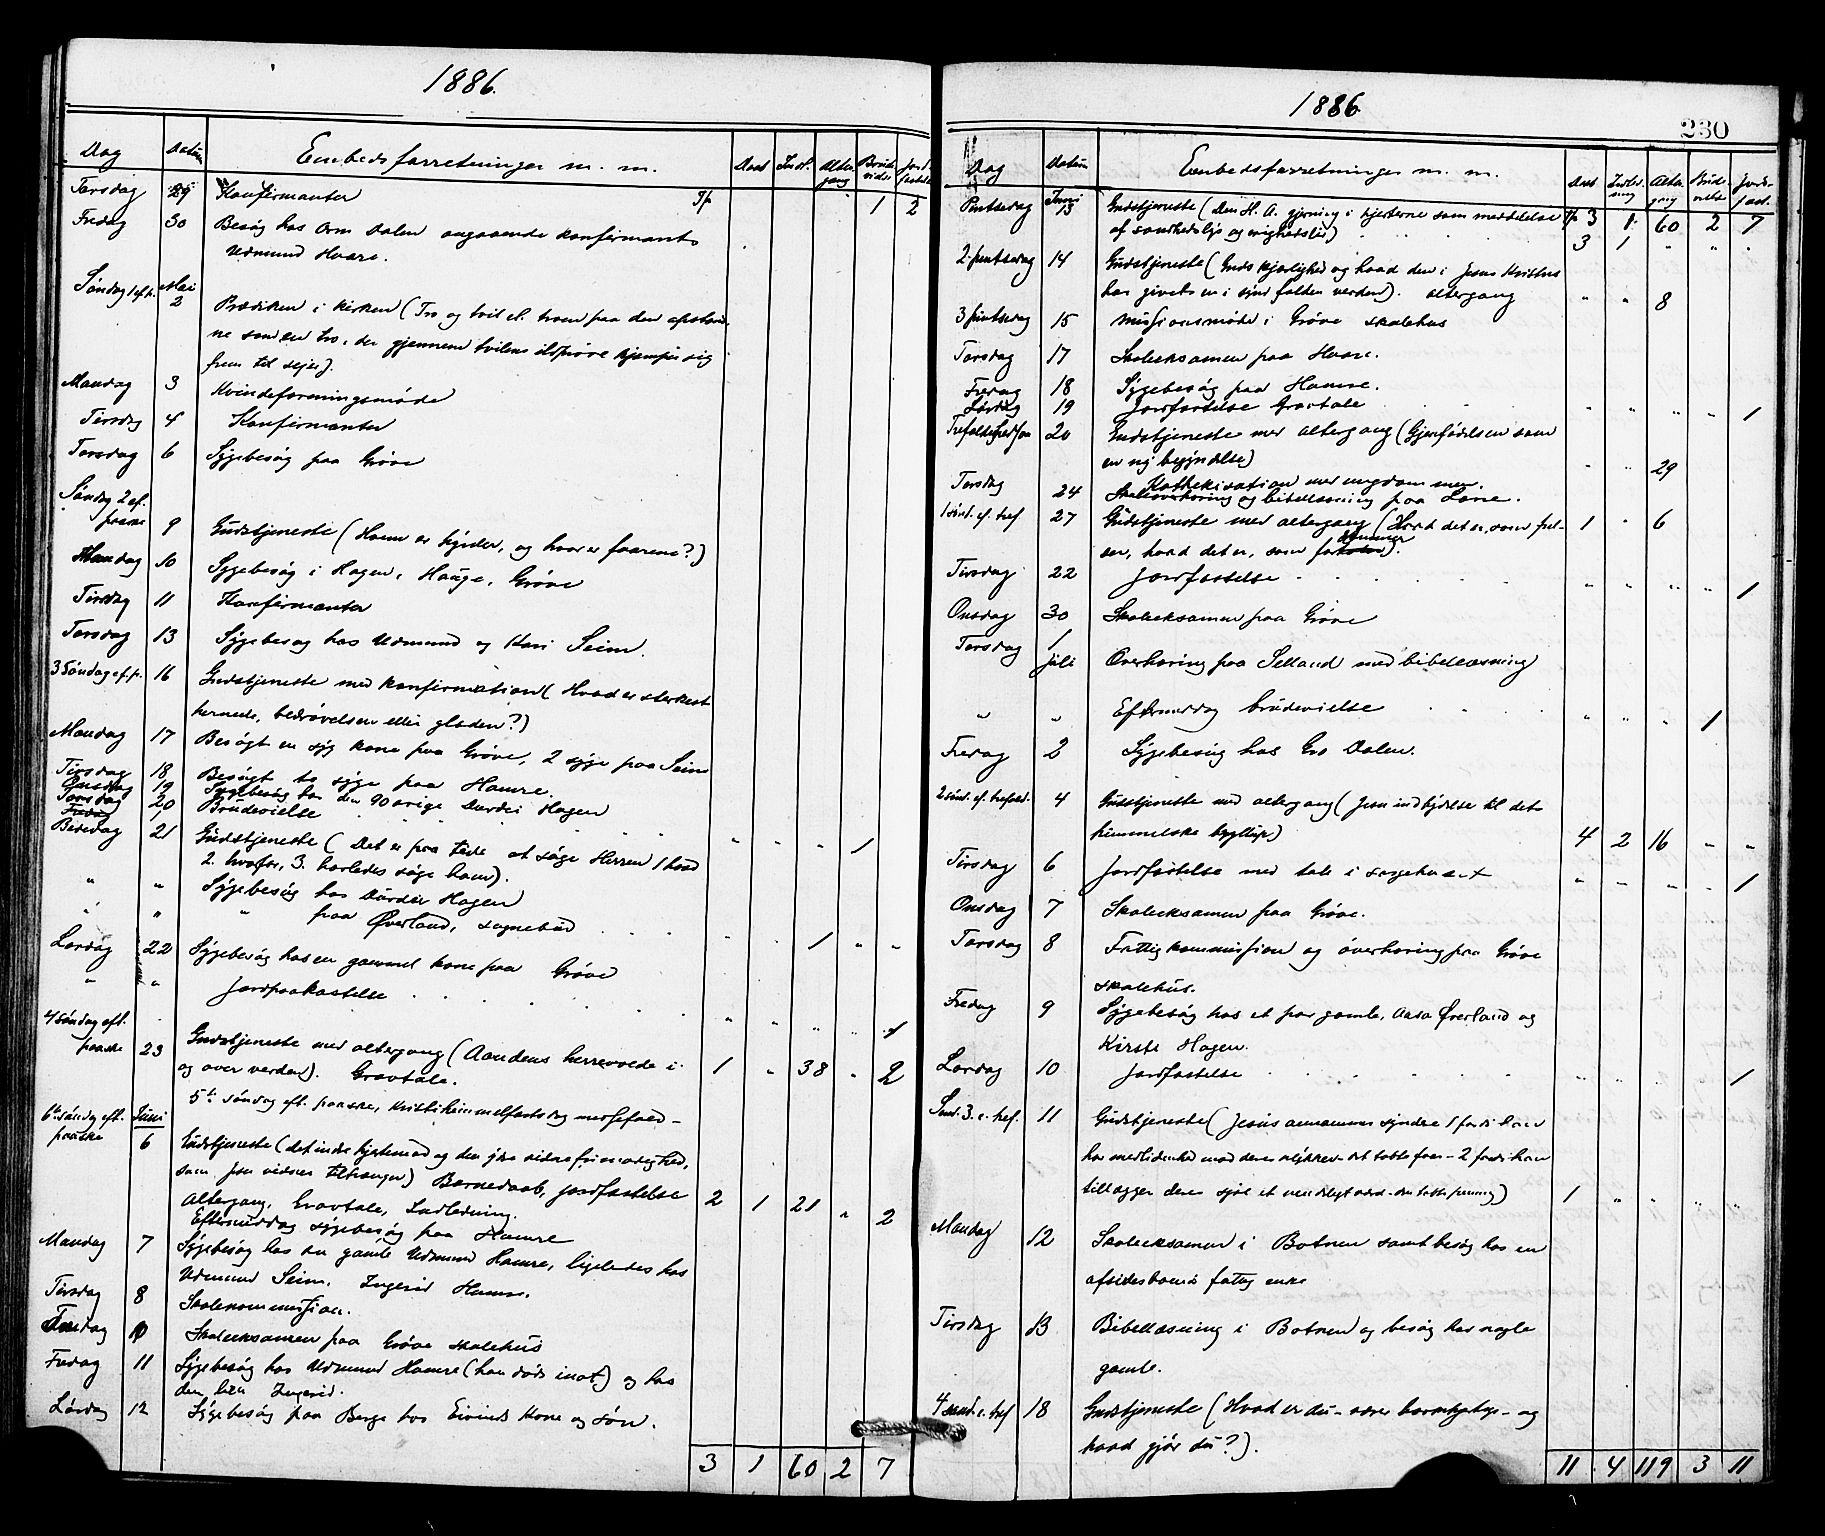 1886.
Dag Datum Embedsforretninger m. m. Daab Indl. Altergang Brudevielse Jordfæstelse
Torsdag 29 Konfirmanter T/p 1 2
Fredag 30 Besög hos Orm Dalen angaaende konfirmants
Udmund Hvare.
Söndag 1 ef. p. Mai 2 Prædiken i kirken (Tro og tvil el. troen paa den opstand-
ne som en tro, der gjennem tvilens ildpröve kjæmper sig
frem til sejer).
Mandag 3 Kvindeforeningsmöde
Tirsdag 4 Konfirmanter
Torsdag 6 Sygebesög paa Gröve
Söndag 2 ef.
paaske 9 Gudstjeneste (Hvem er hyrder, og hvor er faarene?)
Mandag 10 Sygebesög i Hagen, Hauge, Gröve
Tirsdag 11 Konfirmanter
Torsdag 13 Sygebesög hos Udmund og Kari Seim.
3 Söndag ef. p. 16 Gudstjeneste med konfirmation (Hvad er sterkest
hernede, bedrövelsen eller glæden?)
Mandag 17 Besögt en syg kone paa Gröve, 2 syge paa Seim
Tirsdag 18 Besögt to syge paa Hamre.
Onsdag 19 Sygebesög hos den 90 aarige Durdei Hagen
Torsdag 20 Brudevielse 1
Fredag
Bededag 21 Gudstjeneste (Det er paa tide at söge Herren 1 hvad
2. hvorfor, 3. hvorledes söge ham).
" " Sygebesög hos Durdei Hagen
" " " paa Øverland, sognebud 1
Lördag 22 Sygebesög hos en gammel kone paa Gröve
" " Jordpaakastelse 1
4 söndag eft.
paaske 23 Gudstjeneste med altergang (Aandens herrevælde i
og over verden). Gravtale. 1 " 38 " 2
5te söndag eft. paaske, Kristi himmelfartsdag messefald -
6te söndag eft. Juni
paaske 6 Gudstjeneste (det indre hjertemod og den ydre vidne frimodighed,
som Jesu vidner tiltrænger) Barnedaab, jordfæstelse
Altergang, Gravtale, Indledning. 2 1 21 " 2
Eftermiddag sygebesög paa Hamre
Mandag 7 Sygebesög hos den gamle Udmund Hamre, ligeledes hos
Udmund Seim. Ingerid Hamre.
Tirsdag 8 Skolekommission.
10 Skoleeksamen paa Gröve skolehus
Fredag 11 Sygebesög hos Udmund Hamre (han döde inat) og hos
Ingerid.
Lördag 12 Sygebesög paa Berge hos Eivinds kone og sön.
3 1 60 2 7
1886
230
Dag Datum Embedsforretninger m. m. Daab Indledning Altergang Brudevielse Jordfæst.
Pintsedag Juni 13 Gudstjeneste (Den H. A. gjerning i hjerterne som meddelelse T/p 3 1 60 2 7
af sandhedslys og evighedsliv) 3 1 " " "
2. pintsedag 14 Gudstjeneste (Guds kjærlighed og hvad den i Jesus Kristus
har givet en i synd falden verden). Altergang " " 8
3 pintsedag 15 Missionsmöde i Gröve skolehus
Torsdag 17 Skoleeksamen paa Hvare.
Fredag 18 Sygebesög paa Hamre.
Lördag 19 Jordfæstelse Gravtale " " " " 1
20 Gudstjeneste med altergang (Gjenfödelsen som
en ny begyndelse) " " 29
Torsdag 24 Kathekisation med ungdommen.
Skoleoverhöring og bibellæsning paa Lone.
1 sönd. ef. tref 27 Gudstjeneste med altergang (Hvad det er, som frel-
ser, hvad det er, som fordömmer). 1 " 6
Tirsdag 22 Jordfæstelse " " " " 1
Onsdag 30 Skoleeksamen paa Gröve
Torsdag 1 juli Overhöring paa Selland med bibellæsning
" " Eftermiddag brudevielse " " " 1
Fredag 2 Sygebesög hos Gro Dalen.
2 sönd. ef. trefold. 4 Gudstjeneste med altergang (Jesu indbydelse til det
himmelske bryllup) 4 2 16 " "
Tirsdag 6 Jordfæstelse med tale i sörgehuset " " " " 1
Onsdag 7 Skoleeksamen paa Gröve.
Torsdag 8 Fattigkommission og overhöring paa Gröve
skolehus.
Fredag 9 Sygebesög hos et par gamle, Aasa Øverland og
Kirste Hagen.
Lördag 10 Jordfæstelse " " " " 1
Sönd. 3. e. tref. 11 Gudstjeneste (Jesus annammer syndere 1 fordi han
har medlidenhed med deres ulykke - det tabte faar - 2 fordi han
tillægger deres sjæl et uendeligt værd - den tabte penning) 1 " " " "
Mandag 12 Skoleeksamen i Botnen samt besög hos en
afsidesboende fattig enke
Tirsdag 13 Bibellæsning i Botnen og besög hos nogle
gamle.
4 sönd. e. tref 18 Gudstjeneste (Hvad er du - - og
hvad gjör du?).
11 4 119 3 11